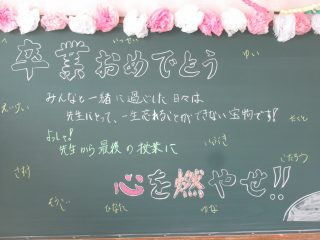 いっせい
ゆい
卒業おめでとう
みんなと一緒に過ごした日々は
先生にとって、一生忘れることができない宝物です!
たくと
よっしゃ!
いぶき
先生から最後の授業に
さわ
こたろう
心を燃やせ!!
ひなた